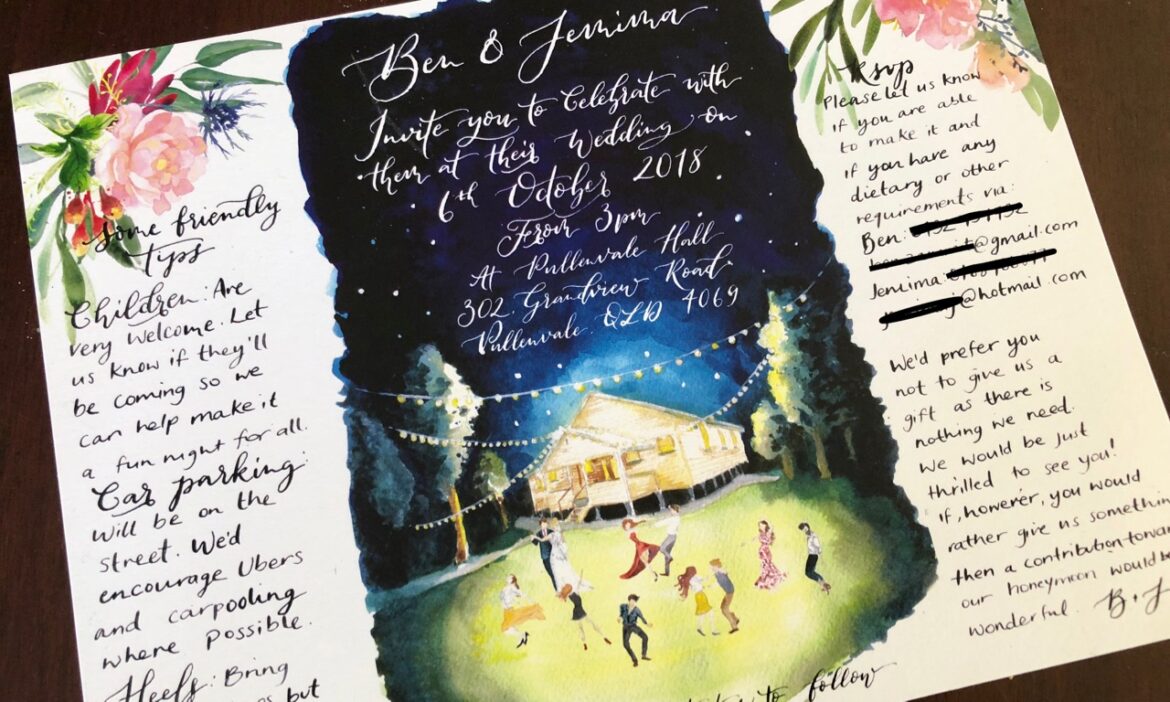 Ben & Jemima
Invite you to Celebrate with
them at their Wedding on
6th October 2018
From 3pm
At Pullenvale Hall
302 Grandview Road
Pullenvale QLD 4069
to follow
Some friendly
tips
Children: Are
very welcome. Let
us know if they'll
be coming so we
can help make it
a fun night for all.
Car parking:
will be on the
street. We'd
encourage Ubers
and carpooling
where possible.
Heels: Bring
but
RSVP
Please let us know
if you are able
to make it and
if you have any
dietary or other
requirements via:
Ben:
@gmail.com
Jemima:
@hotmail.com
We'd prefer you
not to give us a
gift as there is
nothing we need.
We would be just
thrilled to see you!
If, however, you would
rather give us something
then a contribution
our honeymoon would
wonderful. B+J